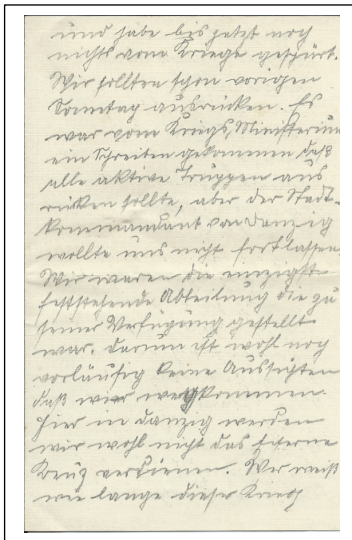 und habe bis jetzt noch
nichts vom Kriege gespürt.
Wir sollten schon vorigen
Sonntag ausrücken. Es
war vom Kriegs Ministerium
ein Schreiben gekommen daß
alle aktive Truppen aus
rücken sollte, aber der Stadt-
kommandant von Danzig
wollte uns nicht fortlassen
Wir waren die einzigst
feststehende Abteilung die zu
seiner Verfügung gestellt
war. Darum ist wohl noch
vorläufig keine Aussichten
daß wir wegkommen.
Hier in Danzig werden
wir wohl nicht das Eiserne
Kreuz verdienen. Wer weiß
wie lange dieser Krieg